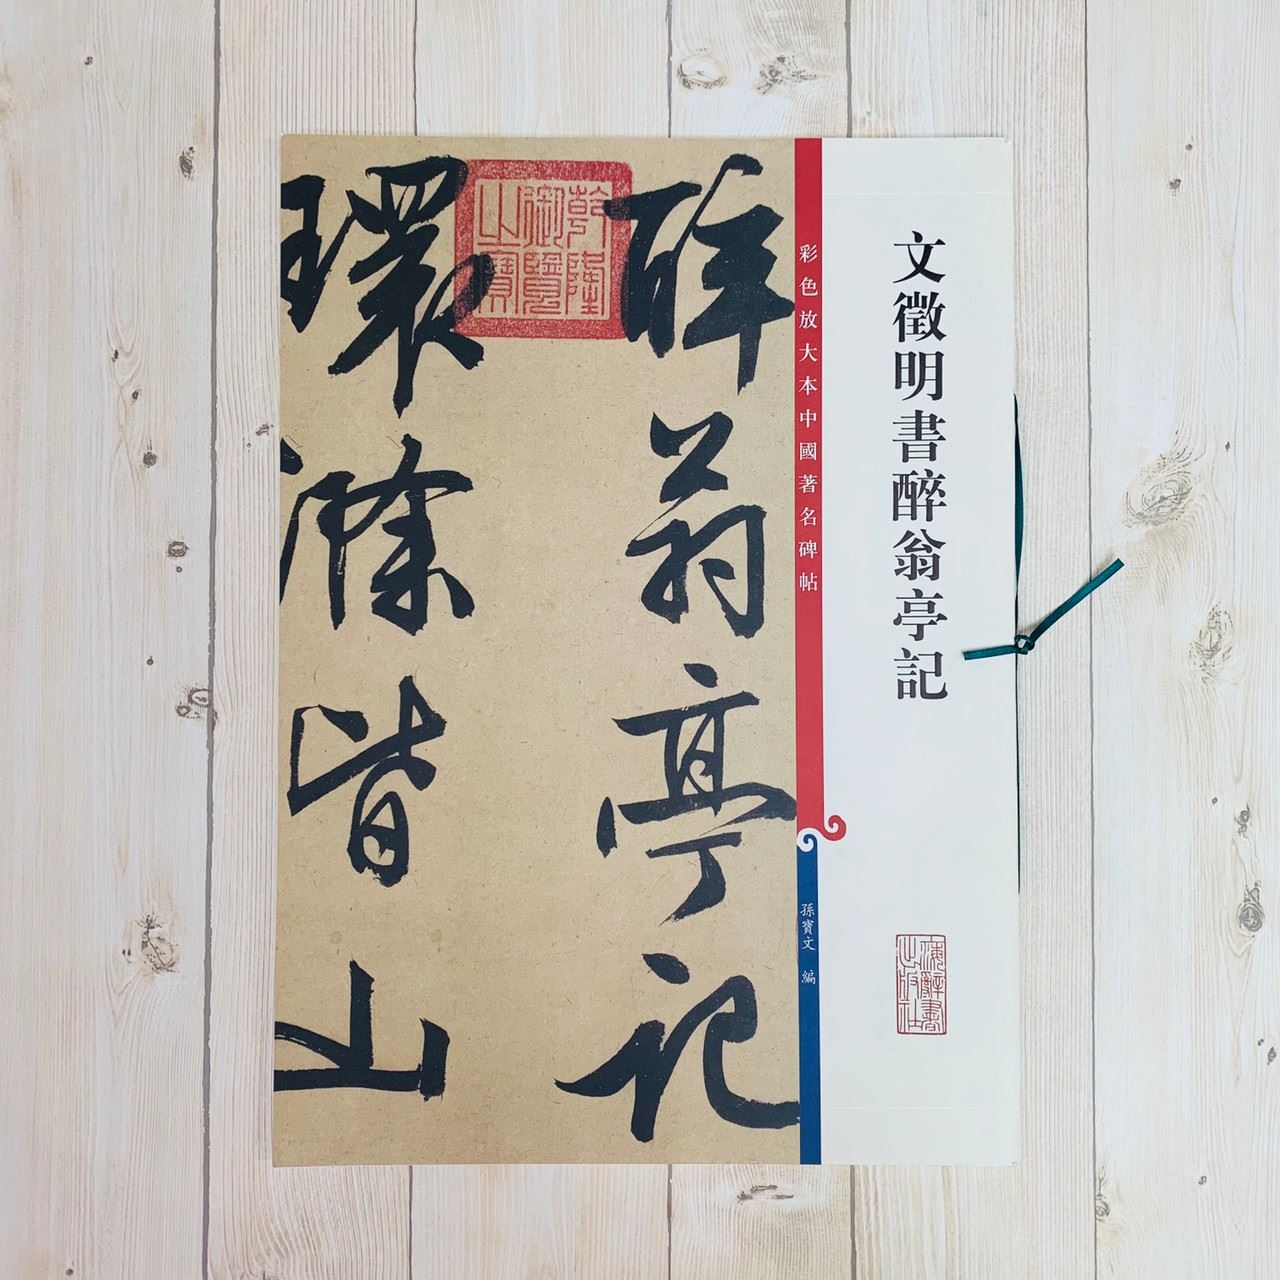 文徵明書醉翁亭記
海辭書出版社
彩色放大本中國著名碑帖
孫寶文 編
醉翁亭記
乾隆御覽之寶
環滁皆山